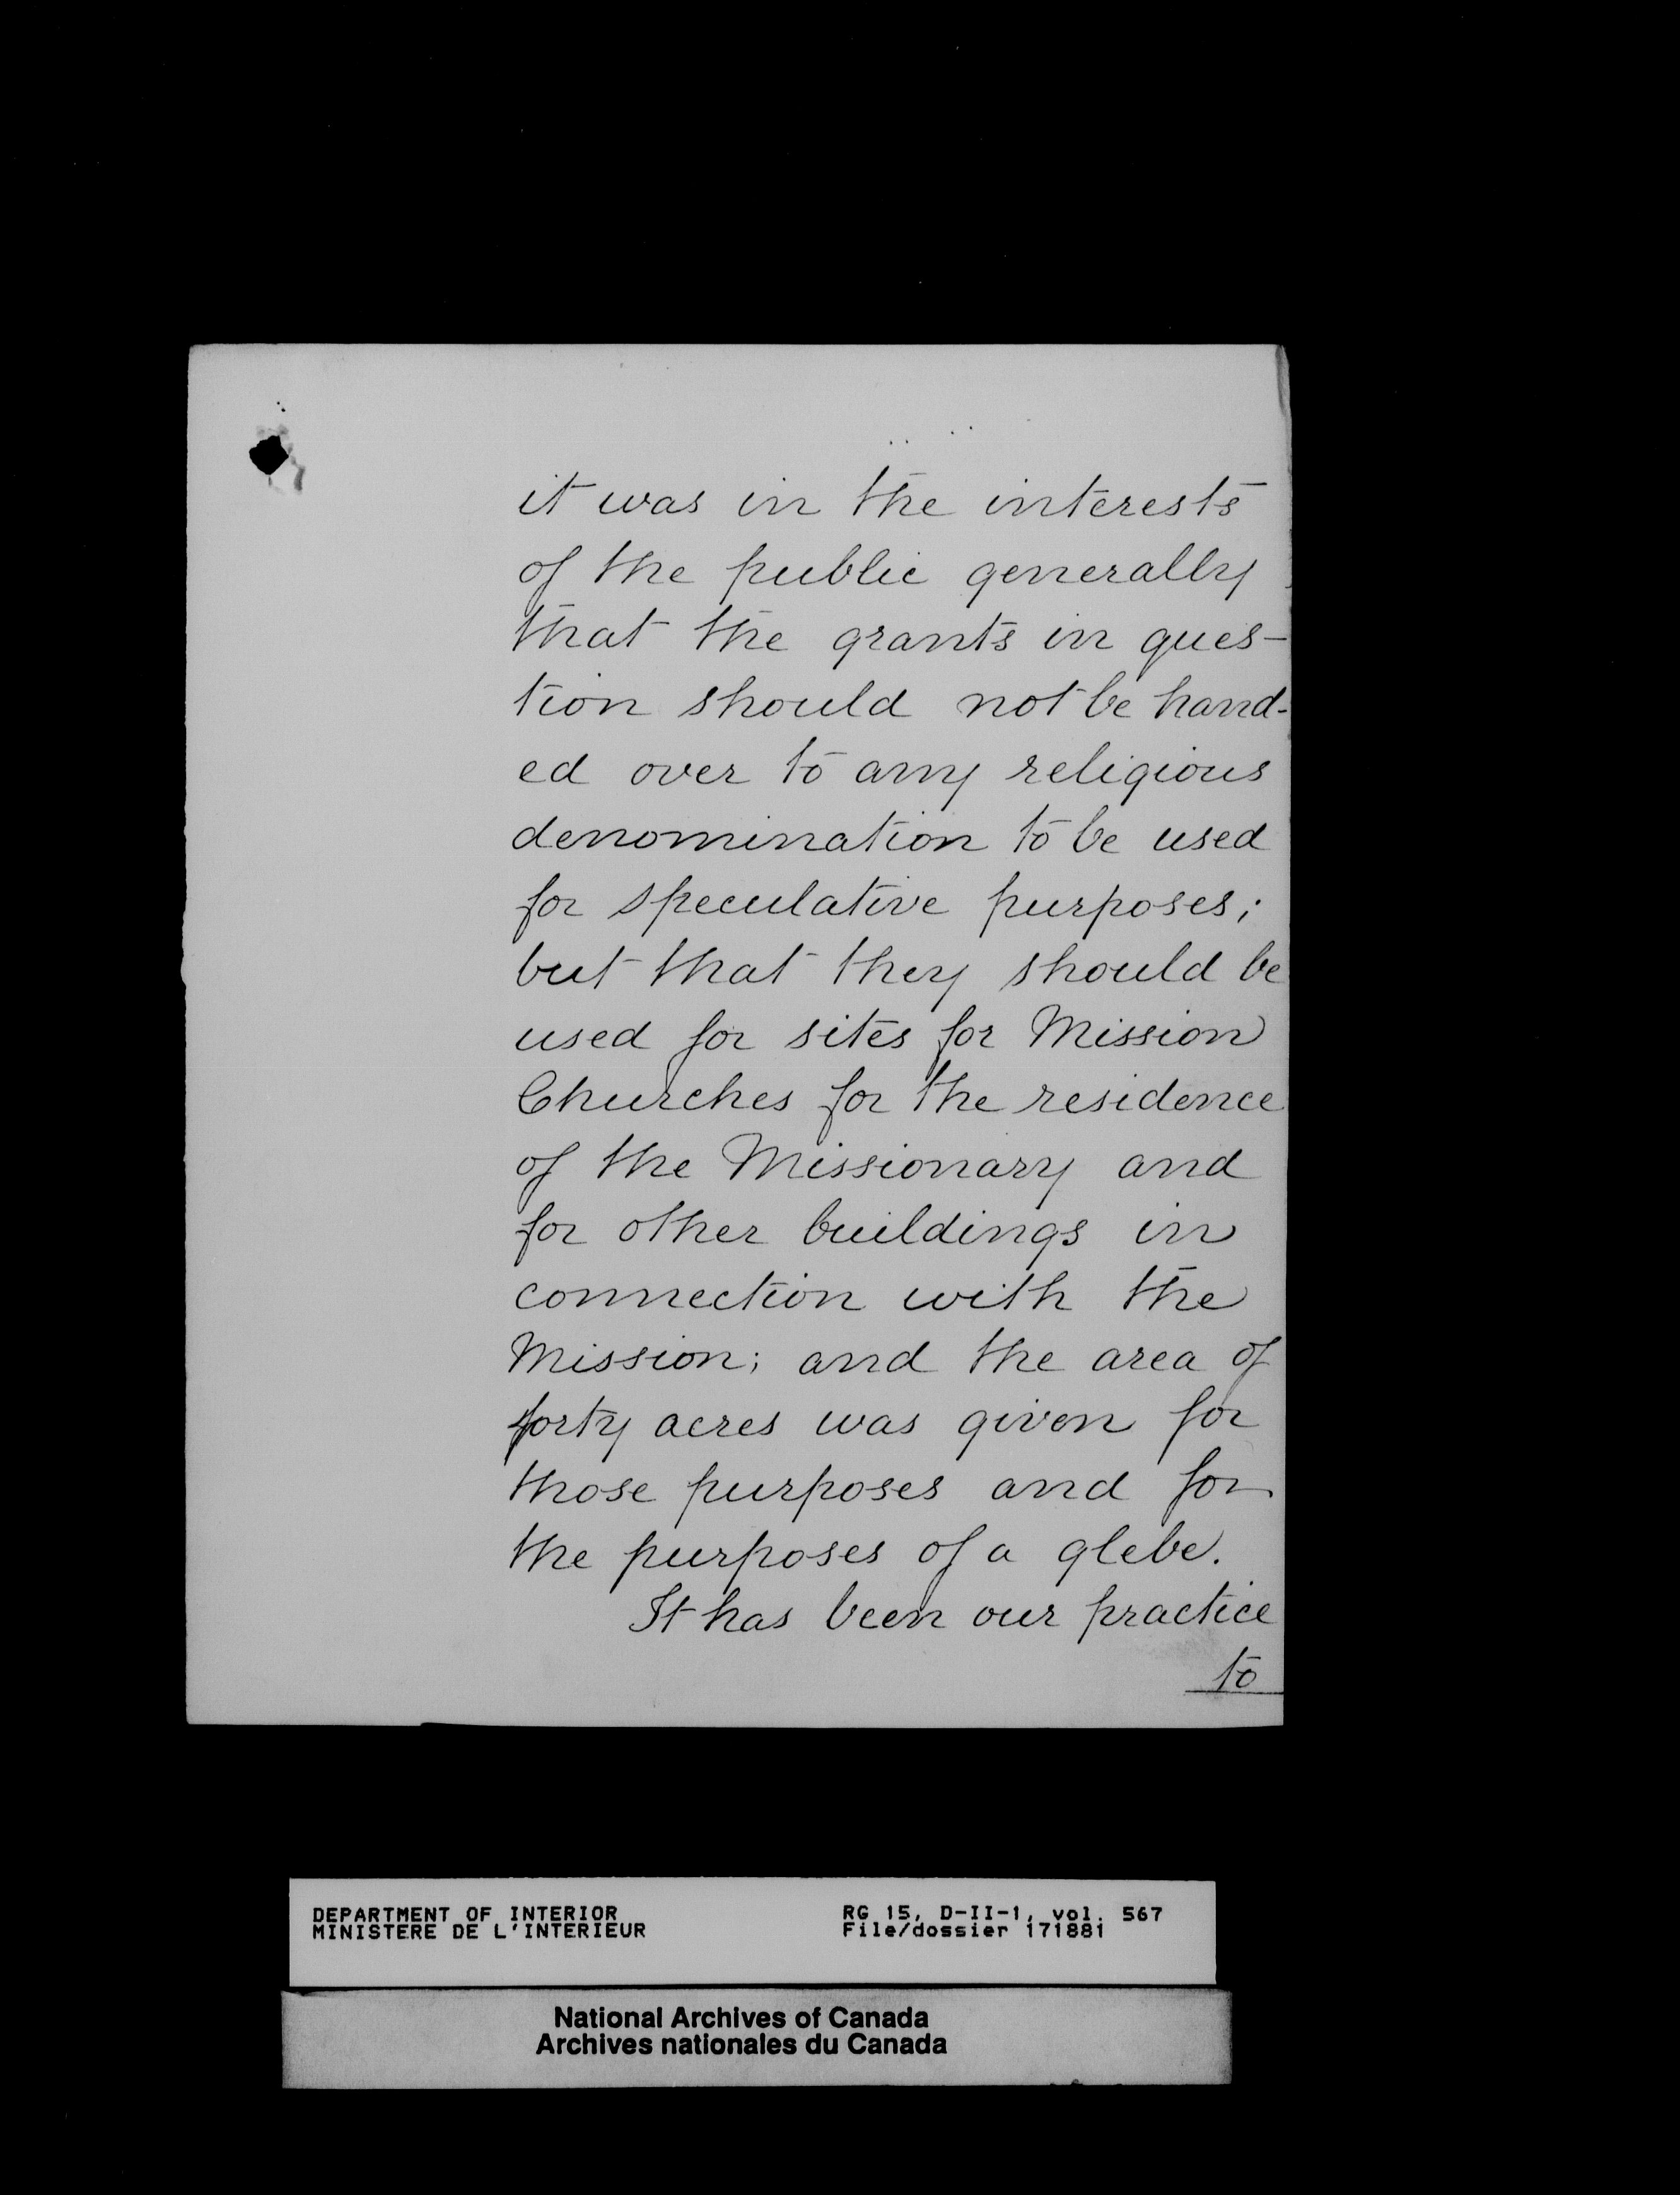 it was in the interests
of the public generally
that the grants in ques-
tion should not be hand-
ed over to any religious
denomination to be used
for speculative purposes;
but that they should be
used for sites for Mission
Churches for the residence
of the Missionary and
for other buildings in
connection with the
Mission; and the area of
forty acres was given for
those purposes and for
the purposes of a glebe.
It has been our practice
to
DEPARTMENT OF INTERIOR RG 15, D-II-1, vol. 567
MINISTERE DE L'INTERIEUR File/dossier 171881
National Archives of Canada
Archives nationales du Canada